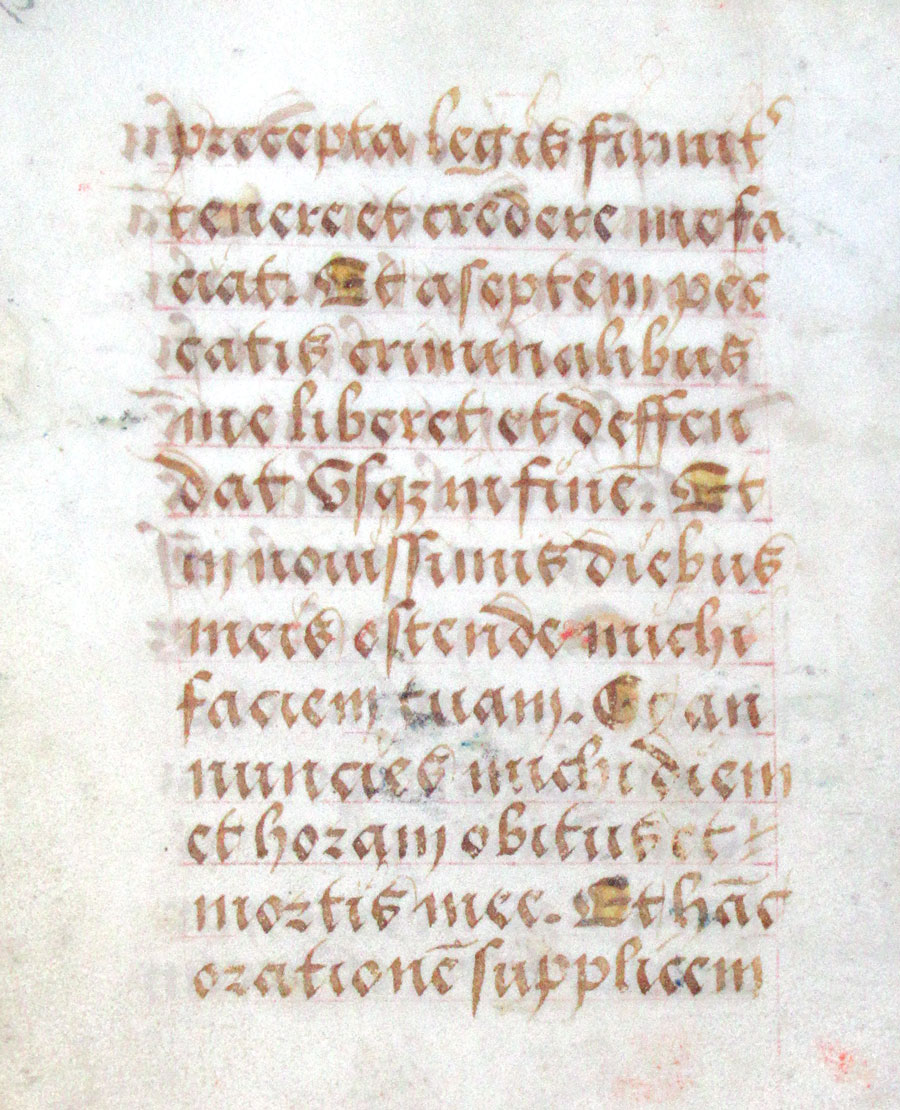 precepta legis firmit᷑
tenere et credere me fa
ciat. Et a septem pec
catis criminalibus
me liberet et deffen
dat vsqꝫ in finē. Et
in nouissimis diebus
meis ostende michi
faciem tuam. Et an
nuncies michi diem
et horam obitus et
mortis mee. Et hāc
orationē supplicem